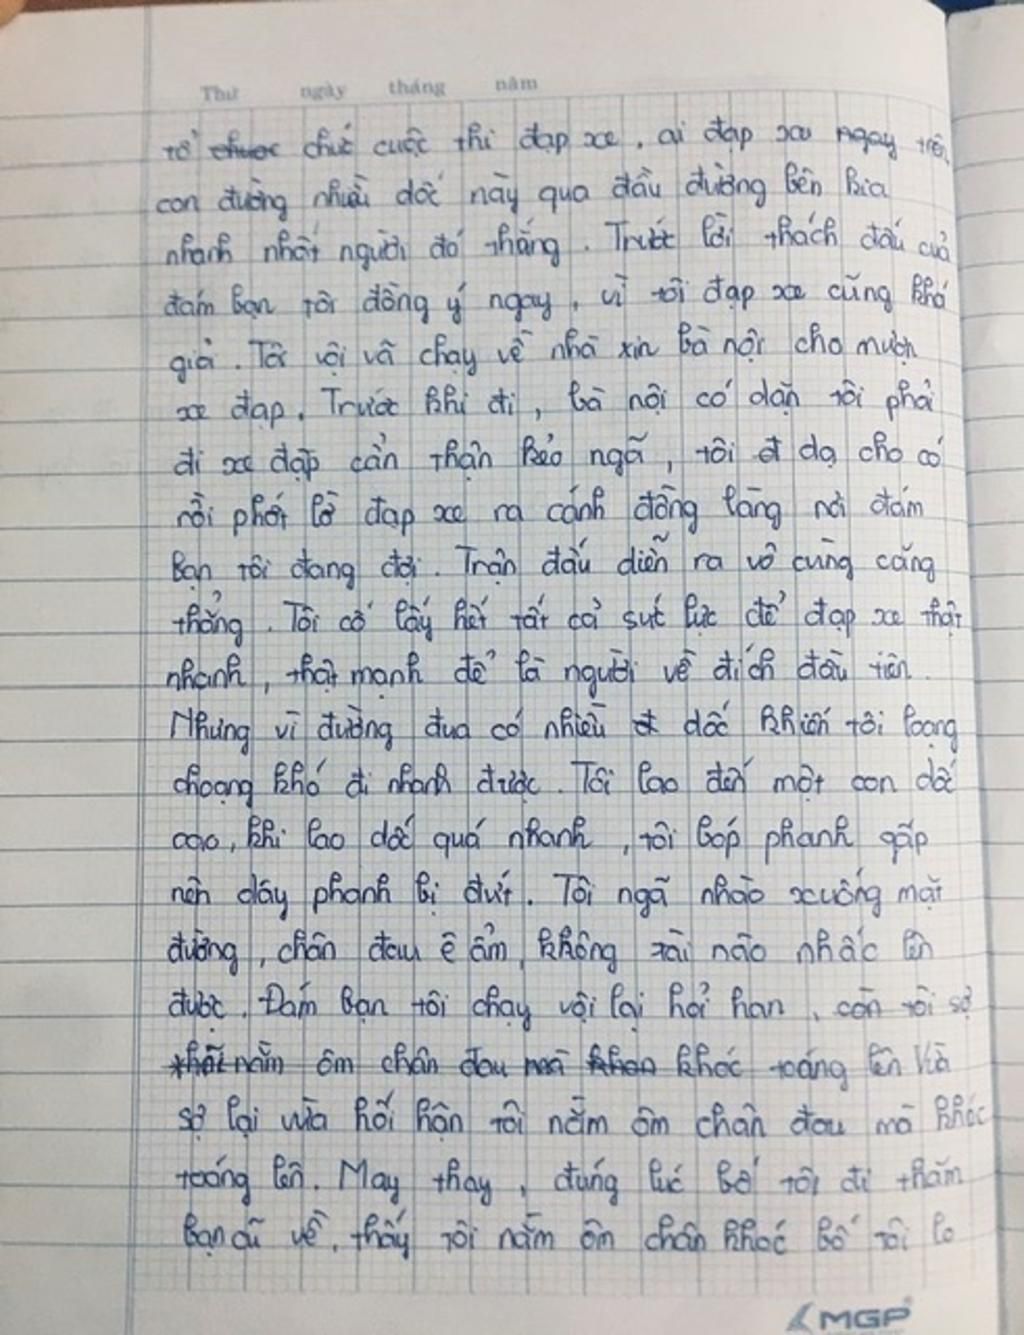 Thứ ngày tháng năm
tổ chươc chức cuộc thi đạp xe, ai đạp xe ngay trên
con đường nhiều dốc này qua đầu đường bên kia
nhanh nhất người đó thắng. Trước lời thách đấu của
đám bạn tôi đồng ý ngay, vì tôi đạp xe cũng khá
giỏi. Tôi vội vã chạy về nhà xin bà nội cho mượn
xe đạp. Trước khi đi, bà nội có dặn tôi phải
đi xe đạp cẩn thận kẻo ngã, tôi đ dạ cho có
rồi phớt lờ đạp xe ra cánh đồng làng nơi đám
bạn tôi đang đợi. Trận đấu diễn ra vô cùng căng
thẳng. Tôi cố lấy hết tất cả sức lực để đạp xe thật
nhanh, thật mạnh để là người về đích đầu tiên.
Nhưng vì đường đua có nhiều đ dốc khiến tôi loạng
choạng khó đi nhanh được. Tôi lao đến một con dốc
cao, khi lao dốc quá nhanh, tôi bóp phanh gấp
nên dây phanh bị đứt. Tôi ngã nhào xuống mặt
đường, chân đau ê ẩm, không tài nào nhấc lên
được. Đám bạn tôi chạy vội lại hỏi han, còn tôi sợ
nằm ôm chân đau mà khoc khóc toáng lên Vừa
sợ lại vừa hối hận tôi nằm ôm chân đau mà khóc
toáng lên. May thay, đúng lúc bố tôi đi thăm
bạn cũ về, thấy tôi nằm ôm chân khóc bố tôi lo
MGP